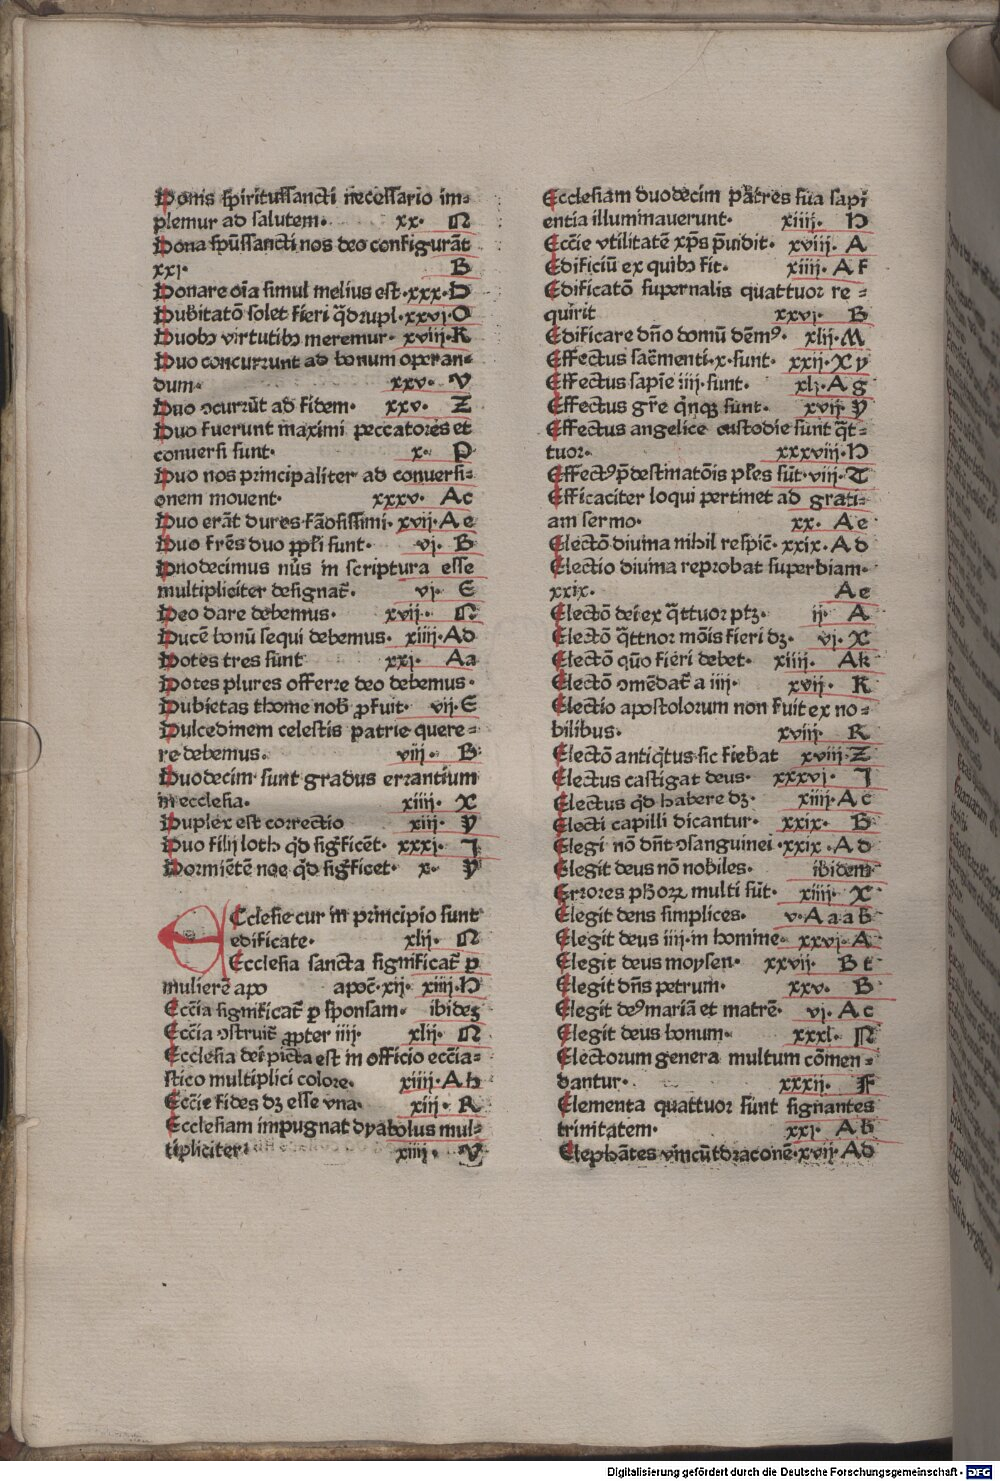 Donis spiritussancti necessario im-
plemur ad salutem. xx. N
Dona spūssancti nos deo configurāt
xxj. B
Donare oīa simul melius est. xxx. D
Dubitatō solet fieri q̄drupl. xxvj. O
Duobꝫ virtutibꝫ meremur. xviij. K
Duo concurrunt ad bonum operan-
dum. xxv. V
Duo ↄcurrūt ad fidem. xxv. Z
Duo fuerunt maximi peccatores et
conuersi sunt. x. P
Duo nos principaliter ad conuersi-
onem mouent. xxxv. Ac
Duo erāt dures fāosissimi. xvij. Ae
Duo fr̄es duo ppl̄i sunt. vj. B
Dnodecimus nūs in scriptura esse
multipliciter designat̄. vj. E
Deo dare debemus. xvij. N
Ducē bonū sequi debemus. xiiij. Ad
Dotes tres sunt xxj. Aa
Dotes plures offerre deo debemus.
Dubietas thome nob̄ ꝓfuit. vij. E
Dulcedinem celestis patrie quere-
re debemus. viij. B
Duodecim sunt gradus errantium
in ecclesia. xiiij. X
Duplex est correctio xiij. Y
Duo filij loth q̄d sigficēt. xxxj. J
Dormiētē noe q̄d sigficet. x. Y
Ecclesie cur in principio sunt
edificate. xlij. N
Ecclesia sancta significat̄ ꝑ
mulierē apo apoc̄. xij. xiiij. H
Ecc̄ia significat̄ ꝑ sponsam. ibideꝫ
Ecc̄ia ↄstruit̄ ꝓpter iiij. xlij. N
Ecclesia dei picta est in officio ecc̄ia-
stico multiplici colore. xiiij. Ah
Ecc̄ie fides dꝫ esse vna. xiij. R
Ecclesiam impugnat dyabolus mul-
tipliciter xiiij. V
Ecclesiam duodecim patres sua sapi
entia illuminauerunt. xiiij. H
Ecc̄ie vtilitatē xp̄s p̄uidit. xviij. A
Edificiū ex quibꝫ fit. xiiij. Af
Edificatō supernalis quattuor re-
quirit xxvj. B
Edificare dn̄o domū dēmꝰ. xlij. M
Effectus sac̄menti. x. sunt. xxij. Xy
Effectus sapie iiij. sunt. xlj. Ag
Effectus gr̄e q̄nqꝫ sunt. xvij. Y
Effectus angelice custodie sunt q̄t-
tuor. xxxviij. H
Effectꝰ p̄destinatōis pl̄es sūt. viij. T
Efficaciter loqui pertinet ad grati-
am sermo. xx. Ae
Electō diuina nihil respic̄. xxix. Ad
Electio diuina reprobat superbiam.
xxix. Ae
Electō dei ex q̄ttuor ptꝫ. ij. A
Electō q̄ttnor mōis fieri dꝫ. vj. X
Electō quō fieri debet. xliij. Ak
Electō ↄmēdat̄ a iiij. xvij. K
Electio apostolorum non fuit ex no-
bilibus. xviij. R
Electō antiq̄tus sic fiebat xviij. Z
Electus castigat deus. xxxvj. J
Electus q̄d habere dꝫ. xiiij. Ac
Electi capilli dicantur. xxix. B
Elegi nō dn̄t ↄsanguinei. xxix. Ad
Elegit deus nō nobiles. ibidem
Errores ph̄orꝝ multi sūt. xiiij. X
Elegit dens simplices. v. Aaab
Elegit deus iiij. in homine. xxvj. A
Elegit deus moysen. xxvij. Bt
Elegit dn̄s petrum. xxv. B
Elegit deꝰ mariā et matrē. vj. Ac
Elegit deus bonum. xxxl. N
Electorum genera multum cōmen-
dantur. xxxij. F
Elementa quattuor sunt signantes
trinitatem. xxj. Ab
Elephātes vincūt draconē. xvij. Ad
Digitalisierung gefördert durch die Deutsche Forschungsgemeinschaft - DFG